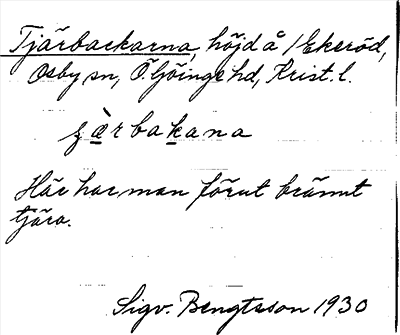 Tjärbackarna, höjd å 1 Ekeröd,
Osby sn, Ö. Göinge hd, Krist. l.
ʒ̀ærbakana
Här har man förut bränt
tjära.
Sigv. Bengtsson 1930